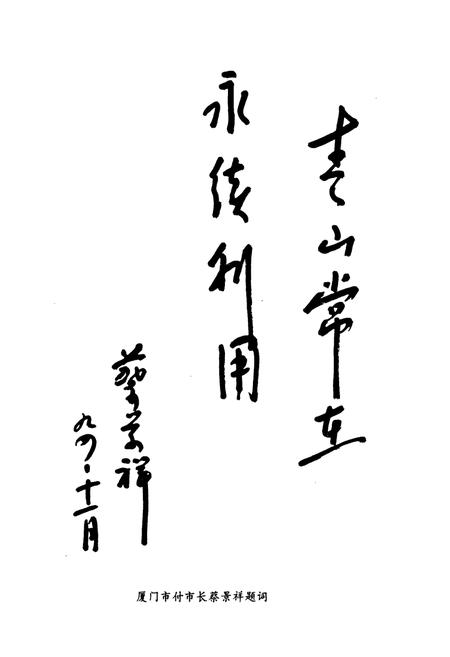 青山常在
永续利用
蔡景祥
九四·十一月
厦门市付市长蔡景祥题词